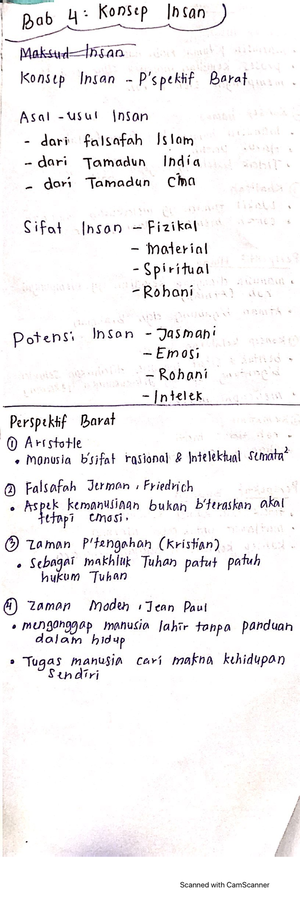 Bab 4: Konsep Insan
Maksud Insan
Konsep Insan - P'spektif Barat
Asal-usul Insan
- dari falsafah Islam
- dari Tamadun India
- dari Tamadun Cina
Sifat Insan - Fizikal
- Material
- Spiritual
- Rohani
Potensi Insan - Jasmani
- Emosi
- Rohani
- Intelek
Perspektif Barat
① Aristotle
• Manusia b'sifat rasional & Intelektual semata²
② Falsafah Jerman, Friedrich
• Aspek kemanusiaan bukan b'teraskan akal
tetapi emosi.
③ Zaman P'tengahan (Kristian)
• Sebagai makhluk Tuhan patut patuh
hukum Tuhan
④ Zaman Moden, Jean Paul
• menganggap manusia lahir tanpa panduan
dalam hidup
• Tugas manusia cari makna kehidupan
sendiri
Scanned with CamScanner